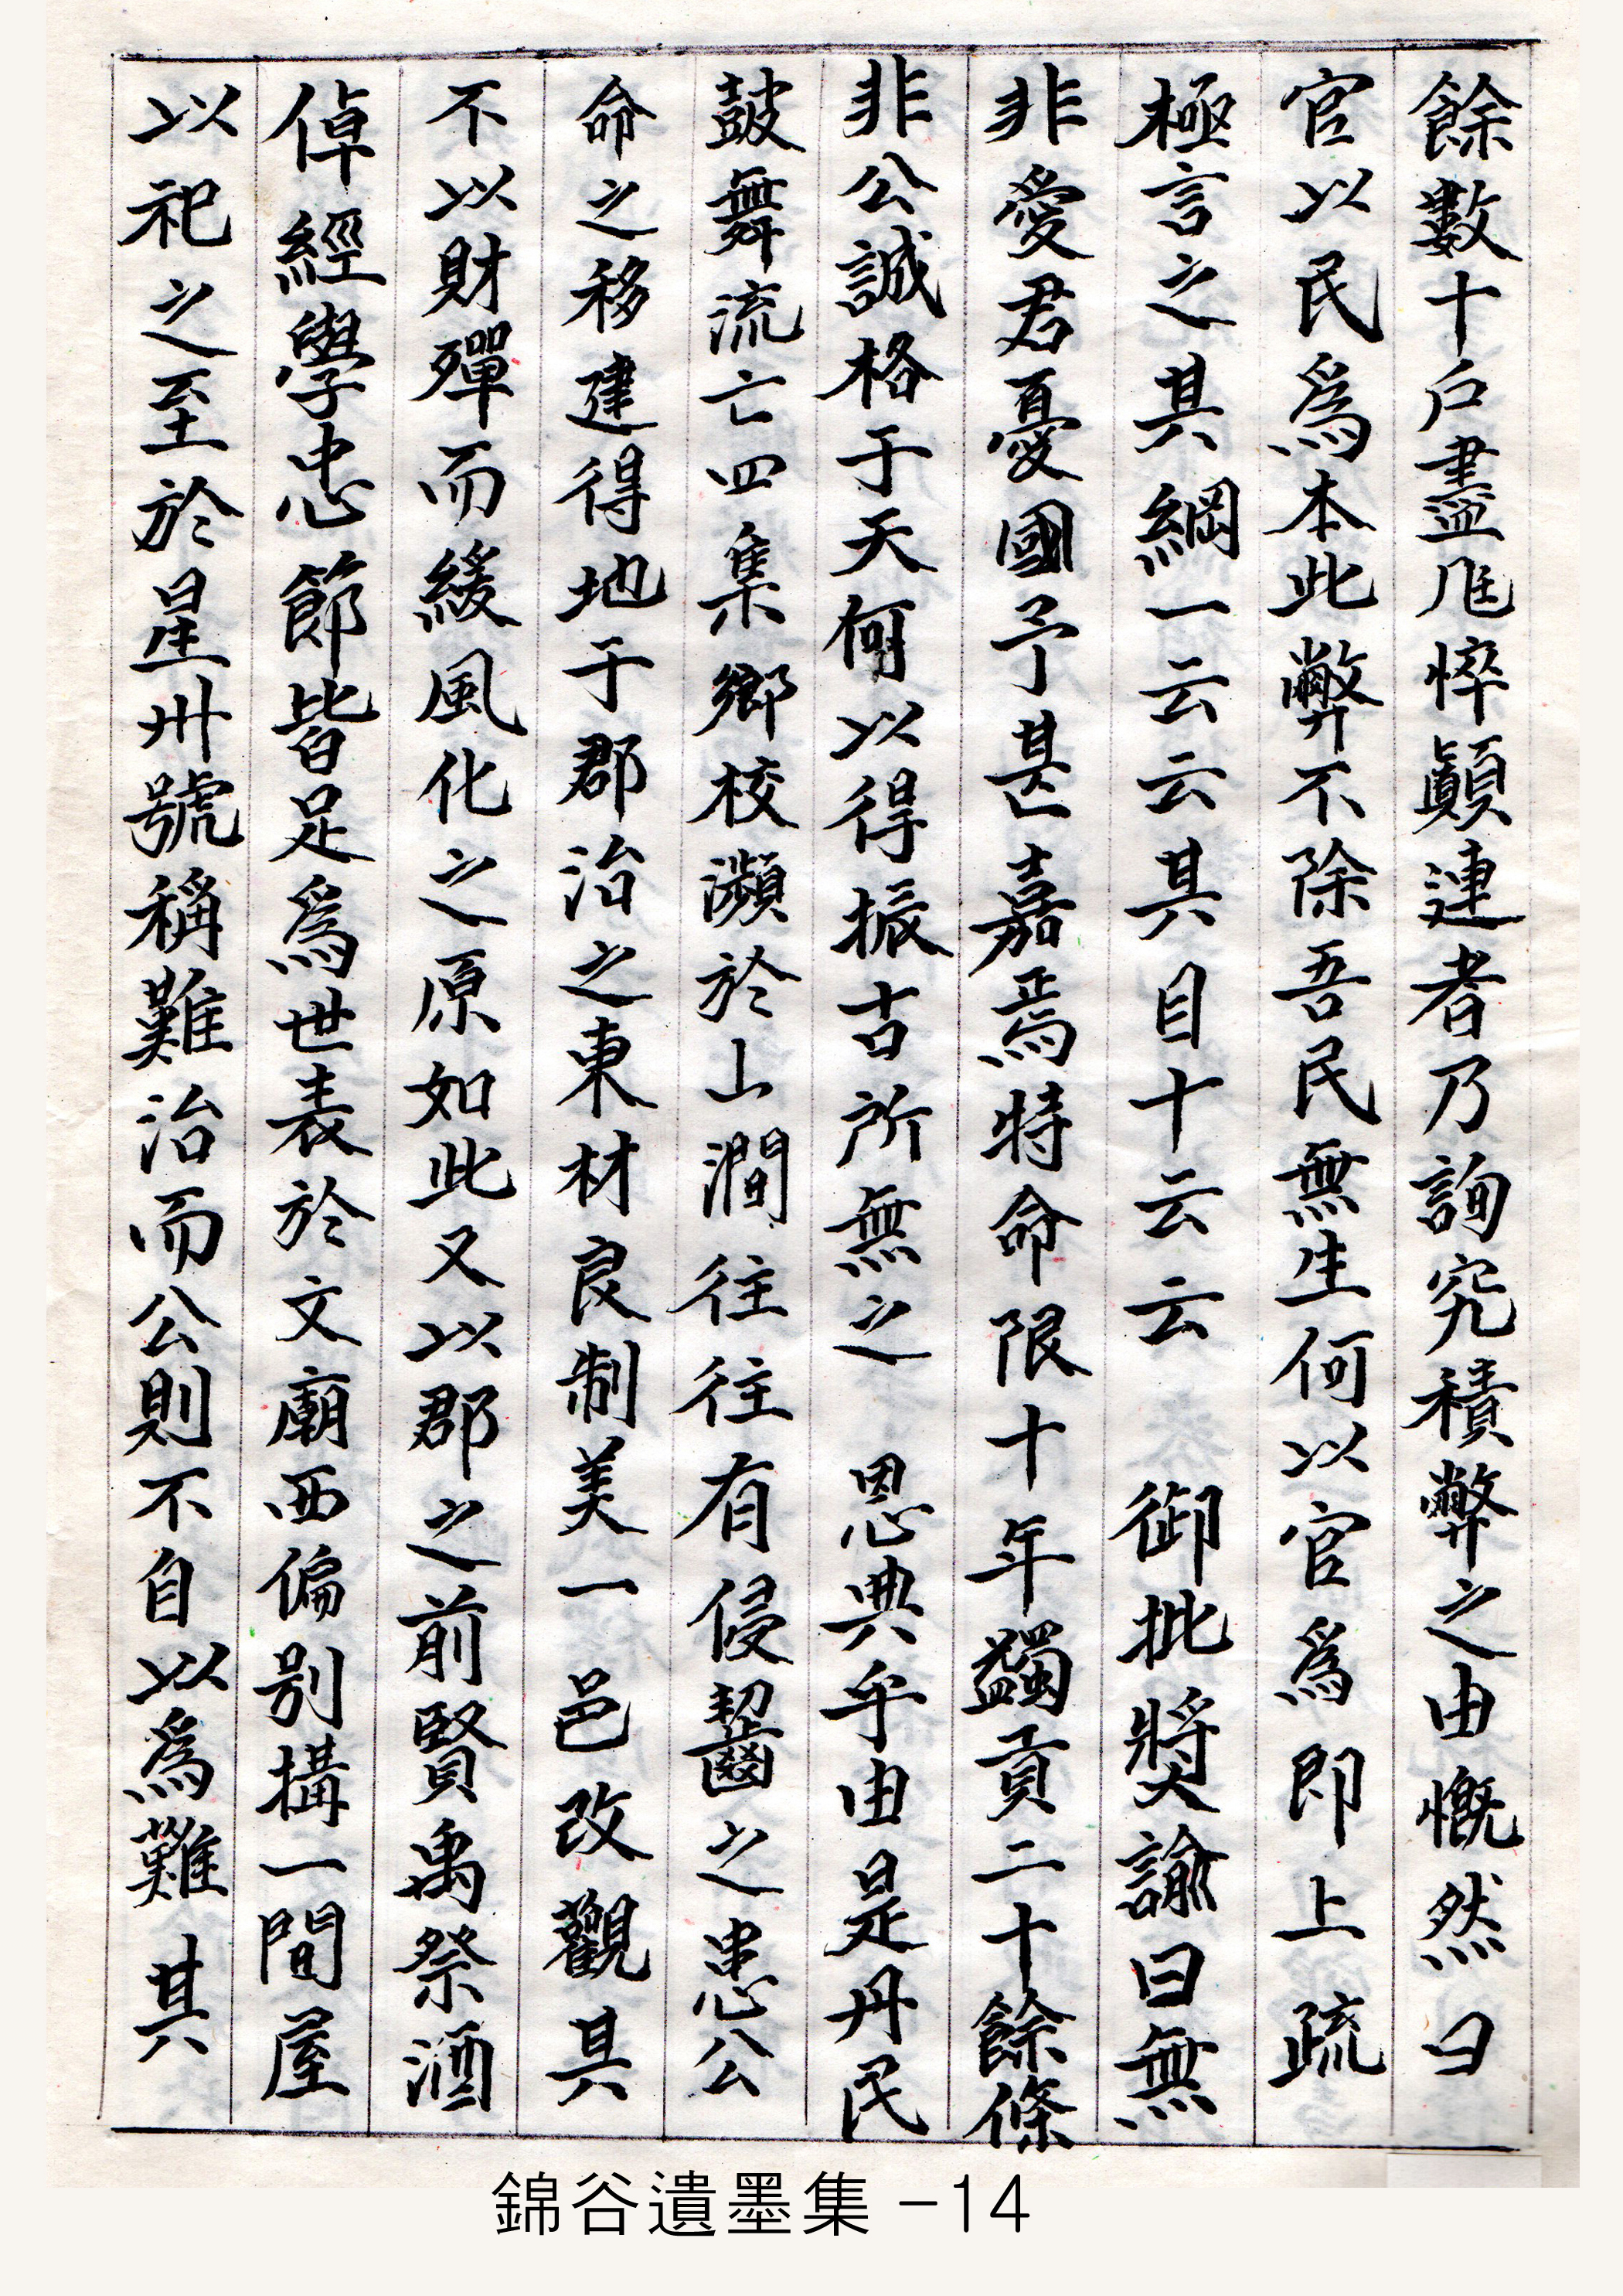 餘數十戶盡尫悴顚連者乃詢究積弊之由慨然曰
官以民爲本此弊不除吾民無生何以官爲卽上疏
極言之其綱一云云其目十云云 御批奬諭曰無
非愛君憂國予甚嘉焉特命限十年蠲貢二十餘條
非公誠格于天何以得振古所無之 恩典乎由是丹民
鼓舞流亡四集鄕校瀕於山澗往往有侵齧之患公
命之移建得地于郡治之東材良制美一邑改觀其
不以財殫而緩風化之原如此又以郡之前賢禹祭酒
倬經學忠節皆足爲世表於文廟西偏別搆一間屋
以祀之至於星州號稱難治而公則不自以爲難其
錦谷遺墨集 -14